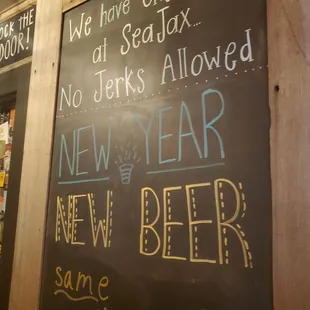 OCK THE
DOOR!
We have
at SeaJax...
No Jerks Allowed
NEW YEAR
NEW BEER
same